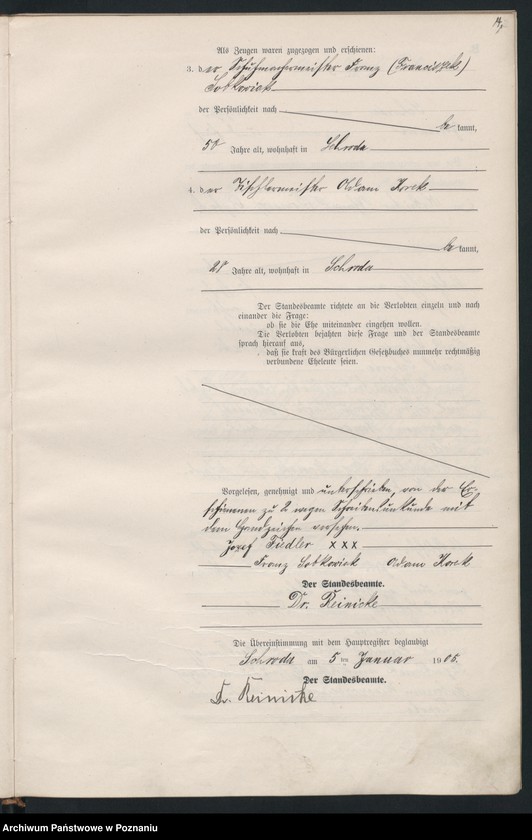 Als Zeugen waren zugezogen und erschienen:
3. d er Schuhmachermeister Franz (Franciszek)
Sobkowiak
der Persönlichkeit nach
be kannt,
50 Jahre alt, wohnhaft in Schroda
4. d er Tischlermeister Adam Horek
der Persönlichkeit nach
be kannt,
28 Jahre alt, wohnhaft in Schroda
Der Standesbeamte richtete an die Verlobten einzeln und nach
einander die Frage:
ob sie die Ehe miteinander eingehen wollen.
Die Verlobten bejahten diese Frage und der Standesbeamte
sprach hierauf aus,
daß sie kraft des Bürgerlichen Gesetzbuches nunmehr rechtmäßig
verbundene Eheleute seien.
Vorgelesen, genehmigt und unterschrieben, von der Er-
schienenen zu 2 wegen Schreibensunkunde mit
dem Handzeichen versehen.
Jozef Fiedler xxx
Franz Sobkowiak Adam Horek
Der Standesbeamte.
Dr. Reinicke
Die Übereinstimmung mit dem Hauptregister beglaubigt
Schroda am 5 ten Januar 1905.
Der Standesbeamte.
Dr. Reinicke
Archiwum Państwowe w Poznaniu